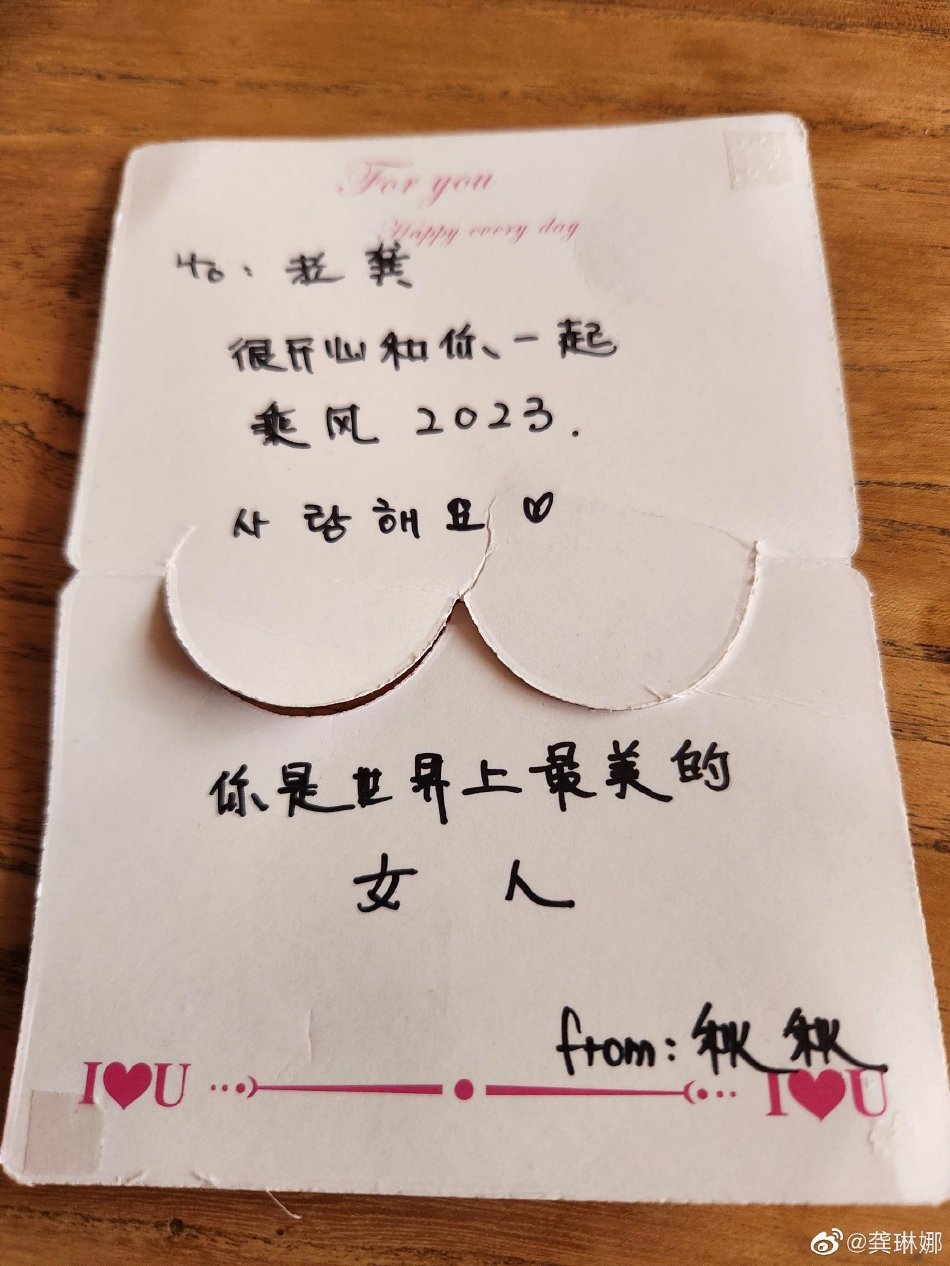 For you
Happy every day
to: 老龚
很开心和你、一起
乘风 2023.
사랑해요♡
你是世界上最美的
女人
from: 秋秋
I♥U I♥U
@龚琳娜